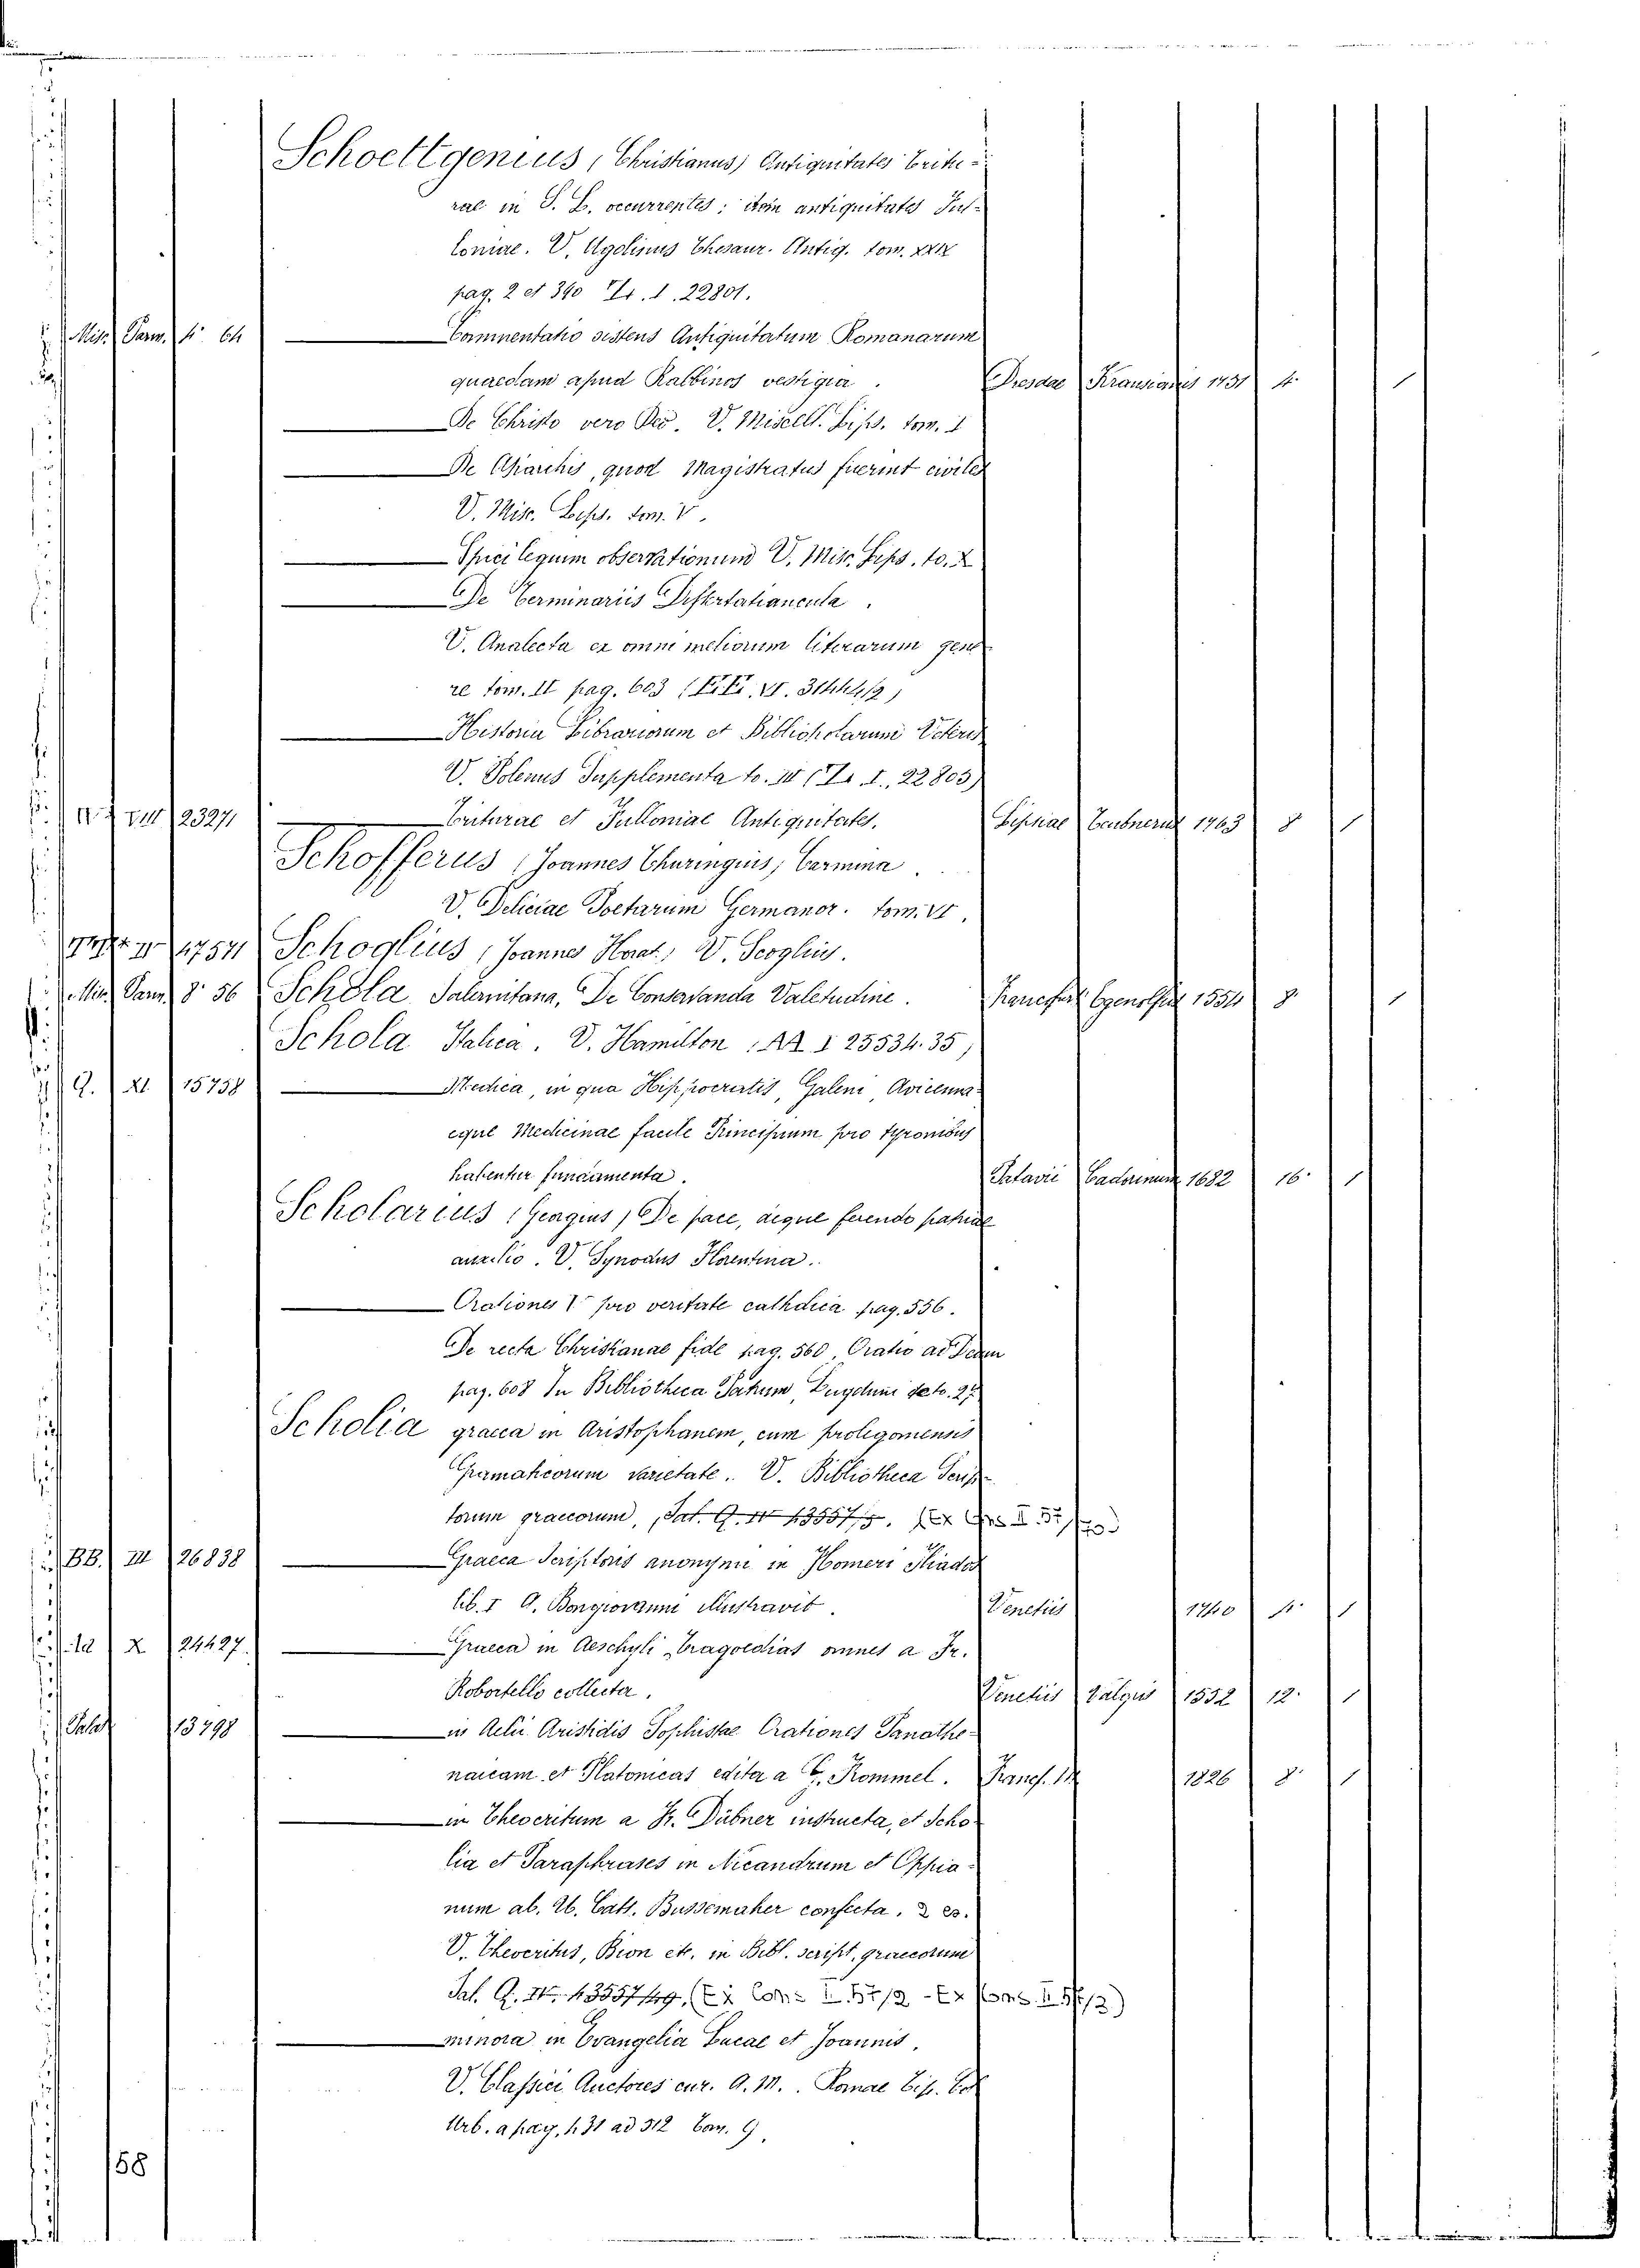 Schoettgenius, (Christianus) Antiquitates Tritu-
rae in S. L. occurrentes; item antiquitates Ful-
loniae. V. Ugolinus Thesaur. Antiq. tom. XXIX
pag. 2 et 390 Tr. I. 22801.
Misc. Parm. 4° 64 Commentatio sistens Antiquitatum Romanarum
quaedam apud Rabbinos vestigia. Dresdae Krausianis 1731 4.° 1
De Christo vero Deo. V. Miscell. Lips. tom. I
De Asiarchis, quod Magistratus fuerint civiles
V. Misc. Lips. tom. V.
Spicilegium observationum V. Misc. Lips. to. X
De Terminariis Dissertatiuncula.
V. Analecta ex omni meliorum literarum gene-
re tom. II pag. 603
Historia Librariorum et Bibliopolarum Veterum
V. Polenus Supplementa to. III (Tr. I., 22803)
23271 Triturae et Fulloniae Antiquitates. Lipsiae Teubnerus 1763 8 1
Schofferus (Joannes Thuringius) Carmina.
V. Deliciae Poetarum Germanor. tom. VI.
Schoglius (Joannes Horat.) V. Scoglius.
Mis. Parm. 8° 56 Schola Salernitana, De Conservanda Valetudine. Francfurt Egenolphus 1554 8° 1
Schola Italica. V. Hamilton (AA I 25534.35)
Q. XI 15758 Medica, in qua Hippocratis, Galeni, Avicennae-
eque Medicinae facile Principium pro tyronibus
habentur fundamenta. Patavii Cadorinum 1682 16° 1
Scholarius (Georgius) De pace, deque ferendo patriae
auxilio. V. Synodus Florentina.
Orationes V pro veritate catholica pag. 556.
De recta Christianae fide pag. 560, Oratio ad Deum
pag. 608 In Bibliotheca Patrum, Lugduni to. 27
Scholia graeca in Aristophanem, cum prolegomensis
Gramaticorum varietate. V. Bibliotheca Scrip-
torum graecorum,
BB. III 26838 Graeca Scriptoris anonymi in Homeri Iliados
lib. I A. Bongiovanni illustravit. Venetiis 1740 4° 1
X 24427. Graeca in Aeschyli Tragoedias omnes a Fr.
Robortello collecta. Venetiis Valgris 1552 12° 1
Palat 13798 in Aelii Aristidis Sophistae Orationes Panathe-
naicam et Platonicas edita a G. Frommel. Francf. M 1826 8° 1
in Theocritum a Fr. Dübner instructa, et Scho-
lia et Paraphrases in Nicandrum et Oppia-
num ab. U. Catt. Bussemaker confecta. 2 es.
V. Theocritus, Bion etc. in Bibl. script. graecorum
minora in Evangelia Lucae et Joannis,
V. Classici Auctores cur. A. M. Romae Tip. Col
Urb. a pag. 431 ad 512 Tom. 9.
158